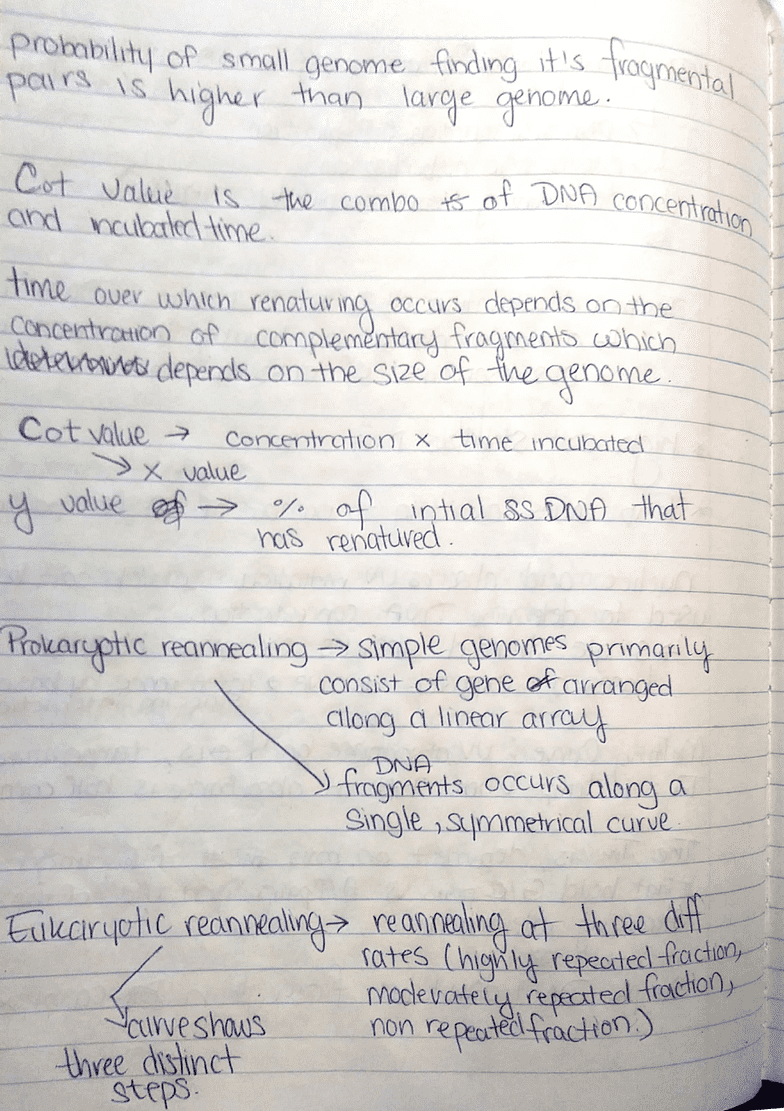 probability of small genome finding it's fragmental
pairs is higher than large genome.
Cot value is the combo is of DNA concentration
and incubated time.
time over which renaturing occurs depends on the
concentration of complementary fragments which
depends on the size of the genome.
Cot value → concentration × time incubated
↘ x value
y value of → % of intial SS DNA that
has renatured.
Prokaryotic reannealing → simple genomes primarily
consist of gene of arranged
along a linear array
DNA
fragments occurs along a
single, symmetrical curve
Eukaryotic reannealing → reannealing at three diff
rates (highly repeated fraction,
moderately repeated fraction,
curve shows non repeated fraction.)
three distinct
steps.